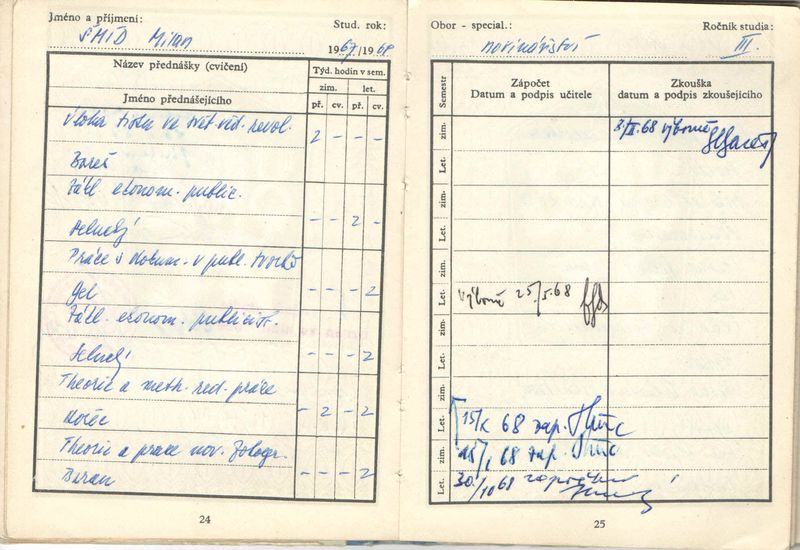 Jméno a příjmení:
ŠMÍD Milan
Stud. rok:
1967/1968
Název přednášky (cvičení)
Týd. hodin v sem.
zim. let.
Jméno přednášejícího
př. cv. př. cv.
Úloha tisku ve
2 - - -
Bareš
Zákl. ekonom. public.
- - 2 -
Práce s dokum. v publ. tvorbě
- - - 2
Gel
Zákl. ekonom. publicist.
- - - 2
Theorie a meth. red. práce
- 2 - 2
Hořec
Theorie a praxe nov. fotogr.
- - - 2
Beran
24
Obor - special.:
novinářství
Ročník studia:
III.
Semestr
Zápočet
Datum a podpis učitele
Zkouška
datum a podpis zkoušejícího
zim. 68 výborně
Let.
zim.
Let.
zim.
Let. výborně 25/5.68
zim.
Let.
zim.
Let. 15/X 68 zap.
zim. 68 zap.
Let. 30./10 68
25